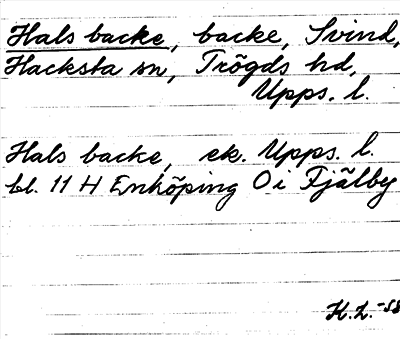 Hals backe, backe, Svind,
Hacksta sn, Trögds hd,
Upps. l.
Hals backe, ek. Upps. l.
bl. 11 H Enköping O i Fjälby
H.L.-58